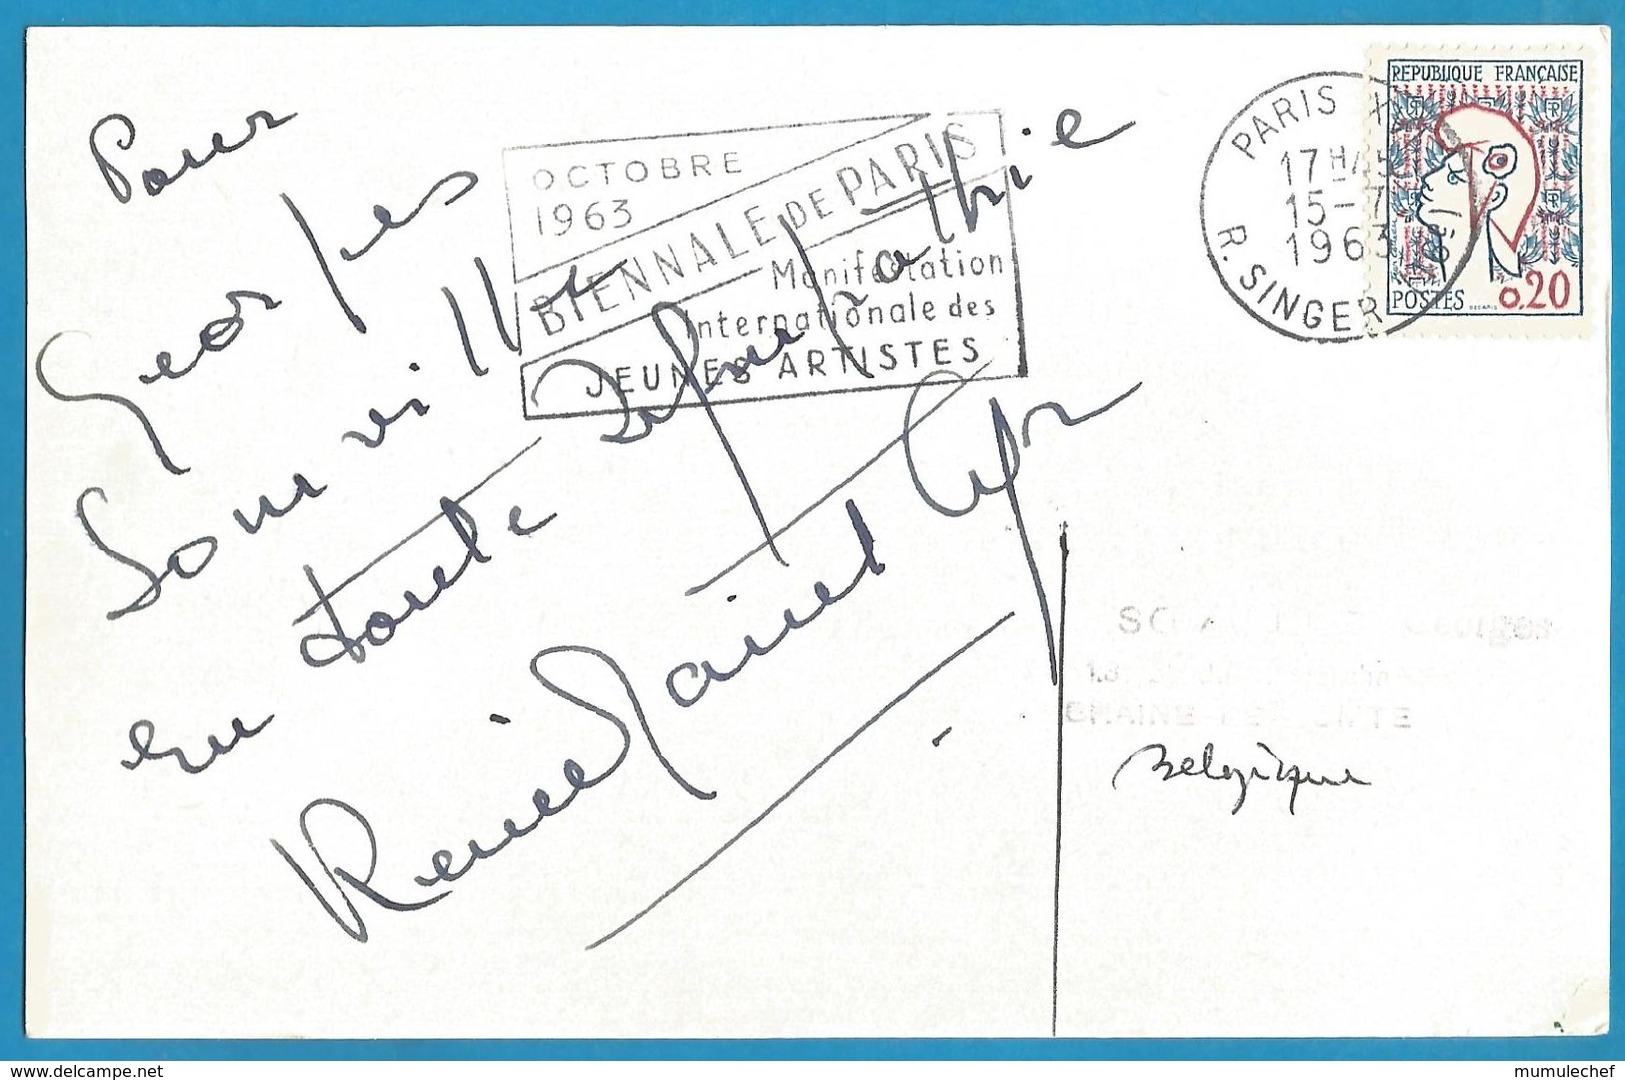 Pour
Georges
Somville
en toute sympathie
Renée Saint Cyr
OCTOBRE
1963
BIENNALE DE PARIS
Manifestation
Internationale des
JEUNES ARTISTES
PARIS
17H45
15-7
1963
R. SINGER
REPUBLIQUE FRANÇAISE
POSTES 0.20
Georges
BRAINE
Belgique
www.delcampe.net
mumulechef